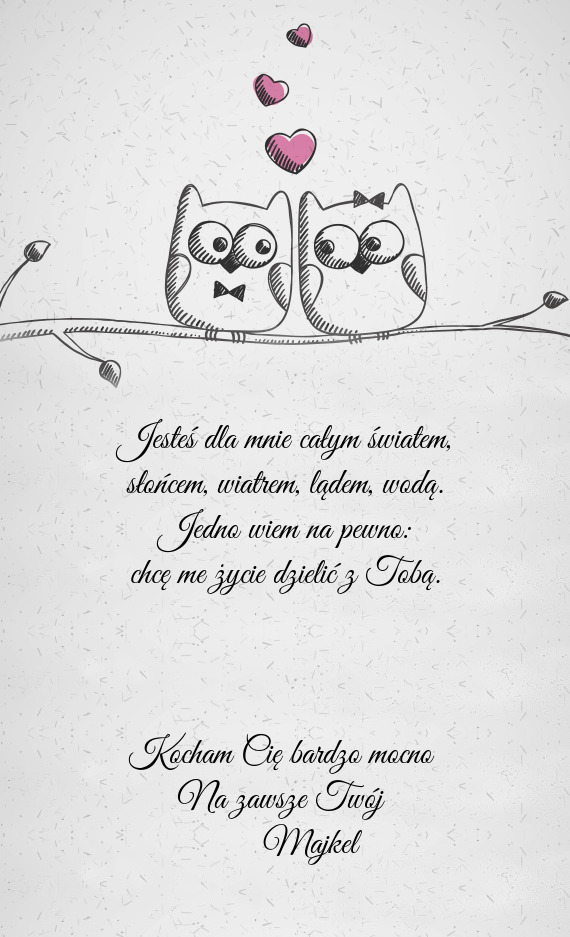 Jesteś dla mnie całym światem,
słońcem, wiatrem, lądem, wodą.
Jedno wiem na pewno:
chcę me życie dzielić z Tobą.
Kocham Cię bardzo mocno
Na zawsze Twój
Majkel